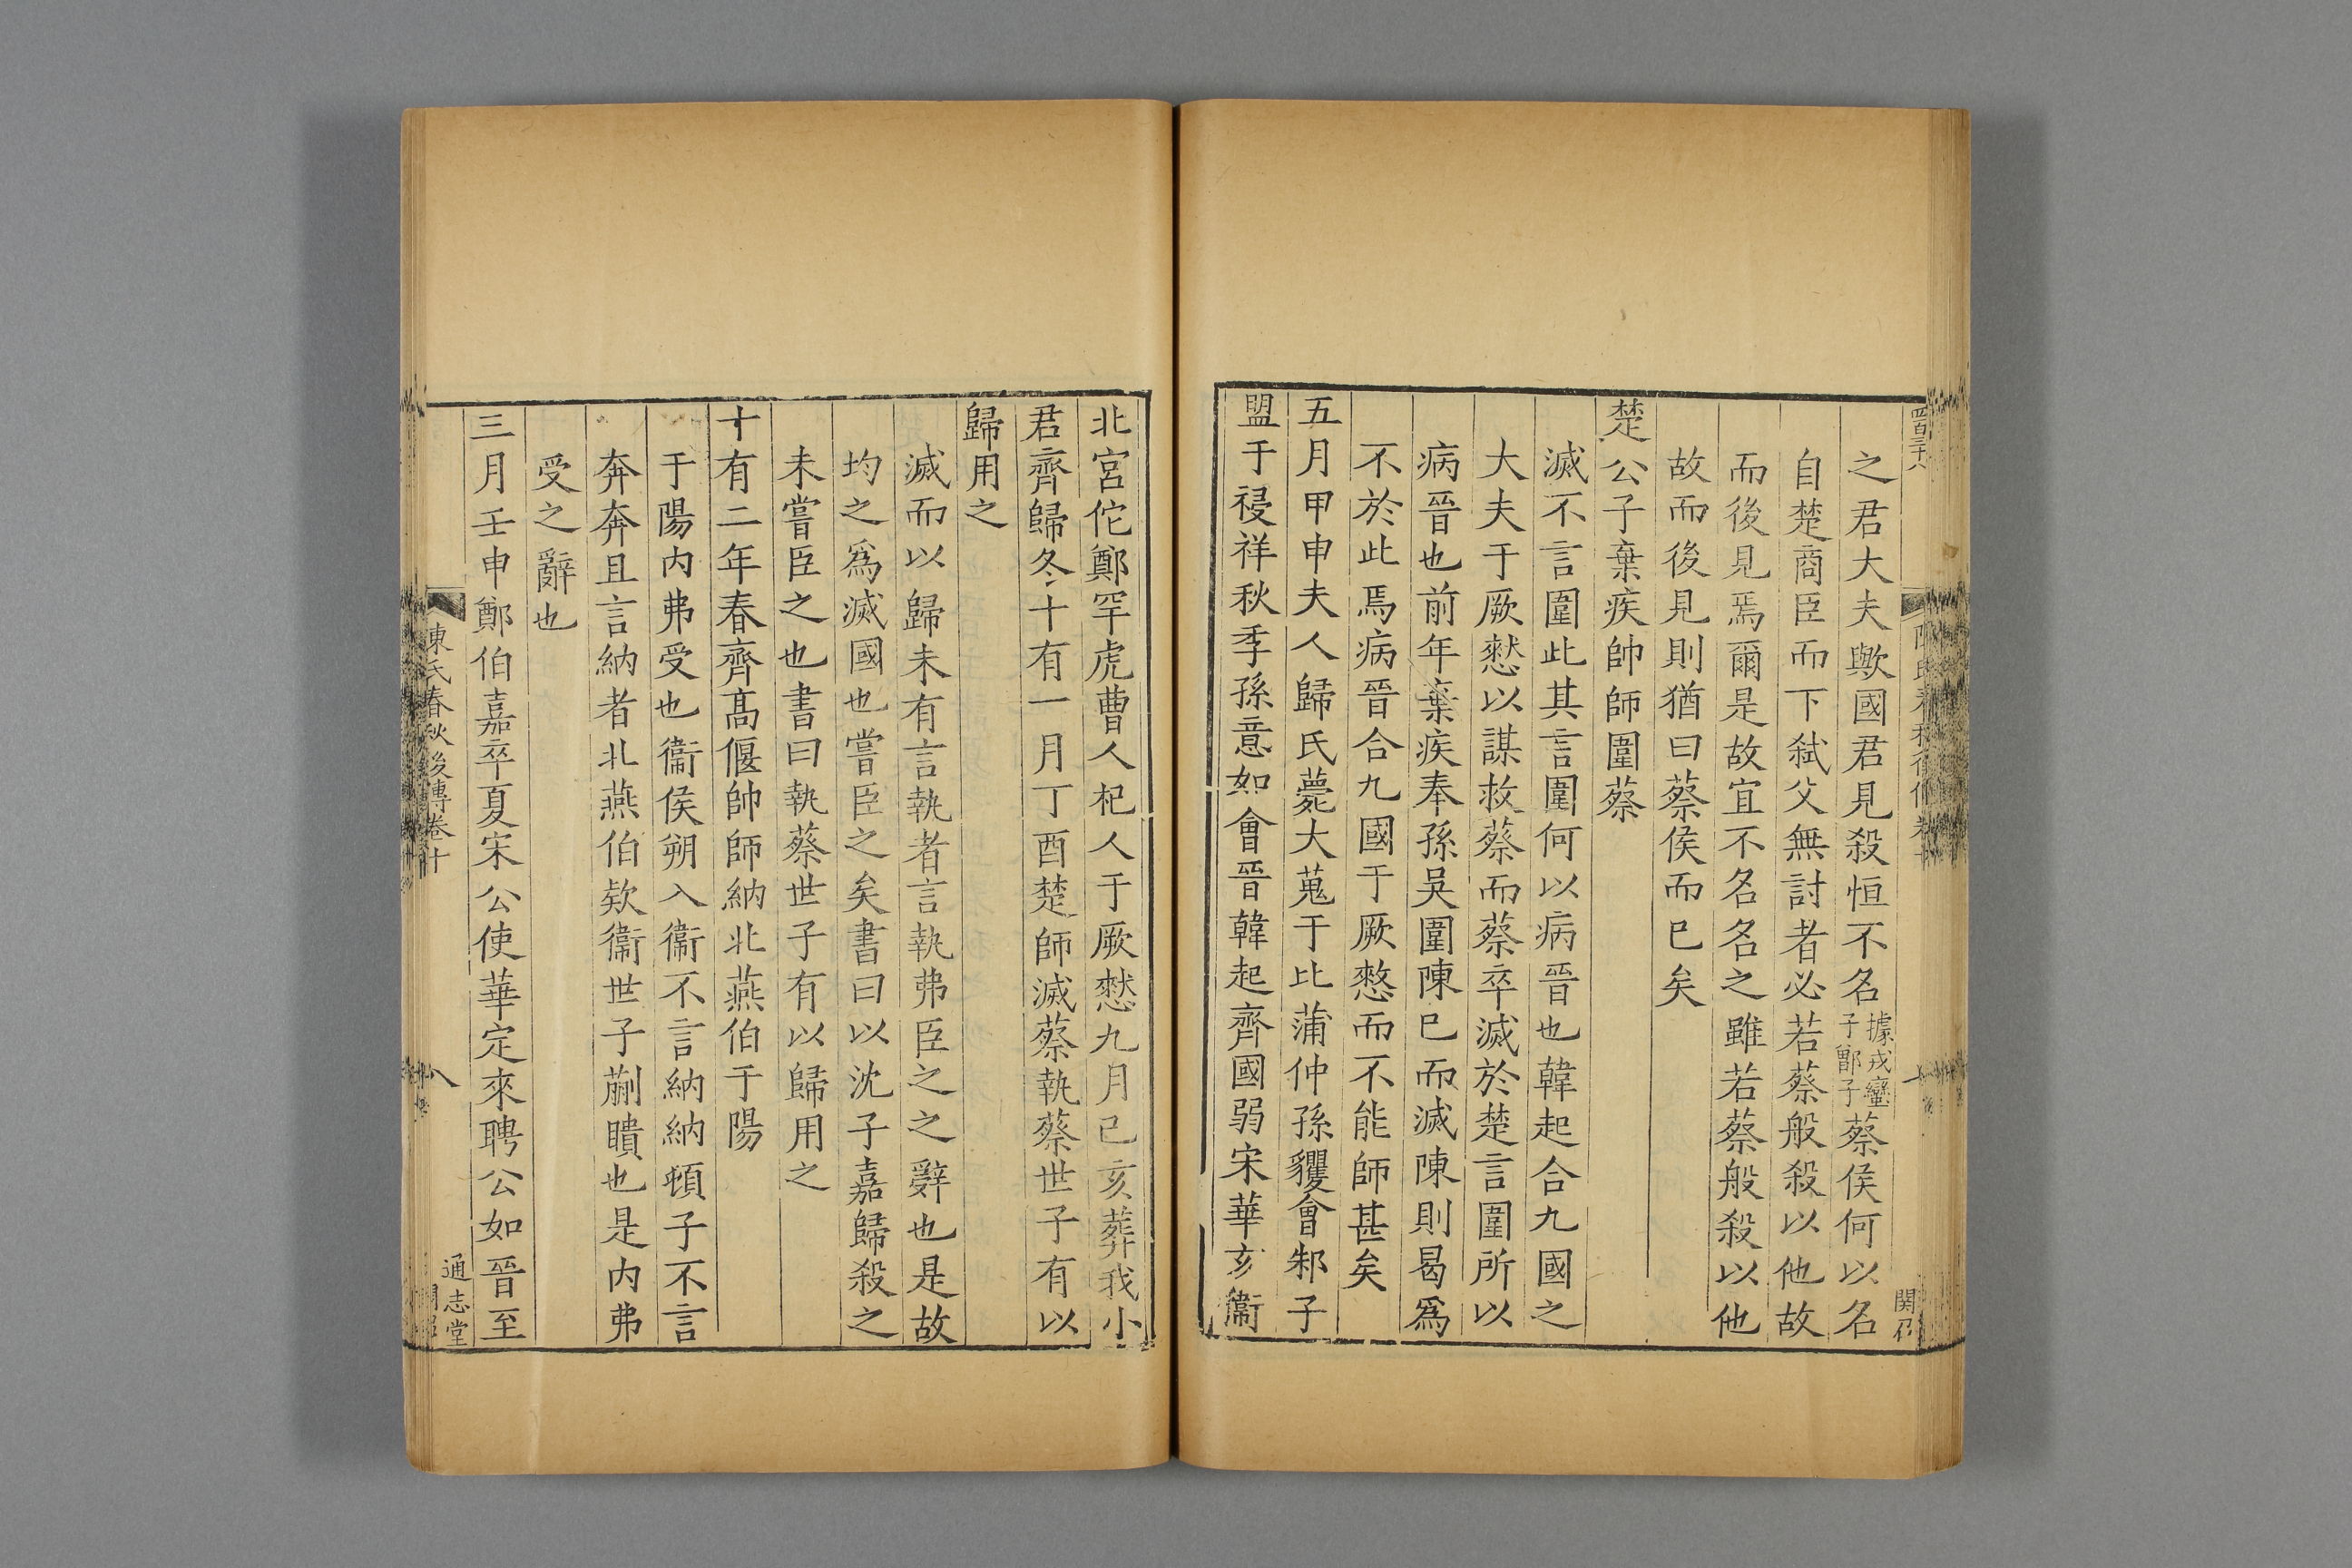 四百三十八
之君大夫歟國君見殺恒不名據戎蠻子鄫子蔡侯何以名
自楚商臣而下弑父無討者必若蔡般殺以他故
而後見焉爾是故宜不名名之雖若蔡般殺以他
故而後見則猶曰蔡侯而已矣
楚公子棄疾帥師圍蔡
滅不言圍此其言圍何以病晉也韓起合九國之
大夫于厥憖以謀救蔡而蔡卒滅於楚言圍所以
病晉也前年棄疾奉孫吳圍陳已而滅陳則曷爲
不於此焉病晉合九國于厥憖而不能師甚矣
五月甲申夫人歸氏薨大蒐于比蒲仲孫貜會邾子
盟于祲祥秋季孫意如會晉韓起齊國弱宋華亥衞
北宮佗鄭罕虎曹人杞人于厥憖九月已亥葬我小
君齊歸冬十有一月丁酉楚師滅蔡執蔡世子有以
歸用之
滅而以歸未有言執者言執弗臣之之辭也是故
均之爲滅國也嘗臣之矣書曰以沈子嘉歸殺之
未嘗臣之也書曰執蔡世子有以歸用之
十有二年春齊髙偃帥師納北燕伯于陽
于陽内弗受也衞侯朔入衞不言納納頓子不言
奔奔且言納者北燕伯欵衞世子蒯聵也是内弗
受之辭也
三月壬申鄭伯嘉卒夏宋公使華定來聘公如晉至
陳氏春秋後傳卷十
八
通志堂